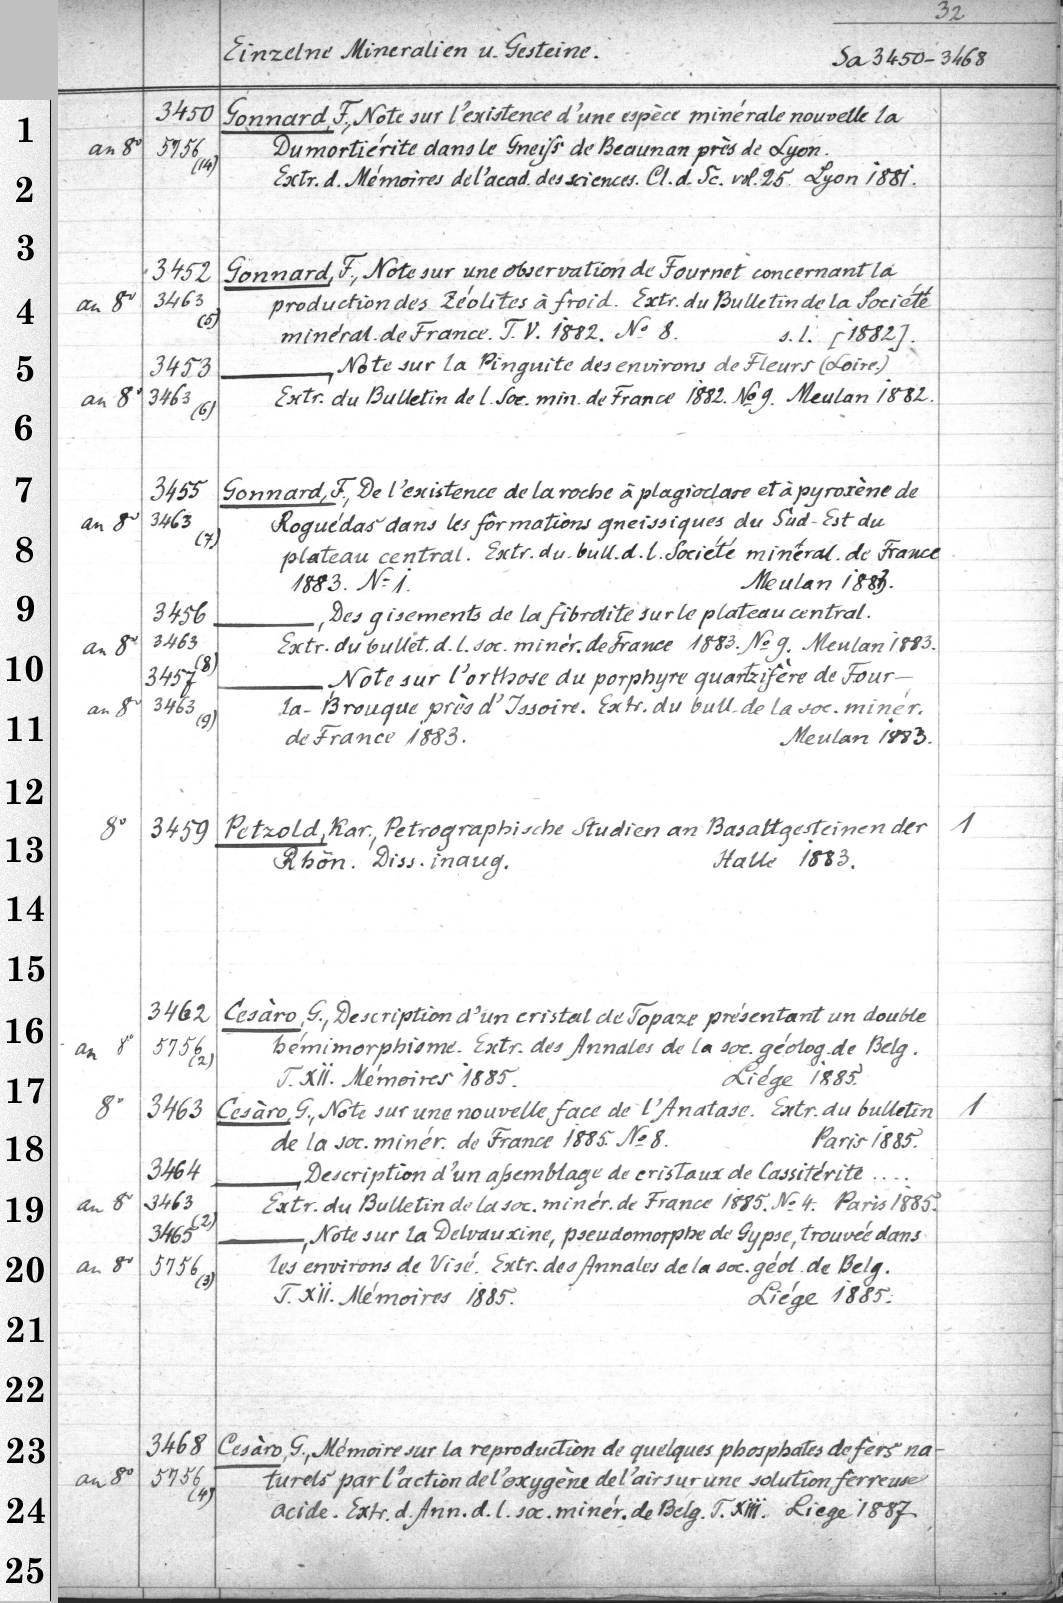 32
Einzelne Mineralien u. Gesteine. Sa 3450-3468
1 3450 Gonnard, F., Note sur l'existence d'une espèce minérale nouvelle la
an 8° 5756 (14) Dumortiérite dans le Gneiſs de Beaunan près de Lyon.
2 Extr. d. Mémoires de l'acad. des sciences. Cl. d. Sc. vol. 25. Lyon 1881.
3
3452 Gonnard, F., Note sur une observation de Fournet concernant la
4 an 8° 3463 (5) production des Zéolites à froid. Extr. du Bulletin de la Société
minéral. de France. T. V. 1882. No 8. s. l. [1882].
5 3453 ———, Note sur la Pinguite des environs de Fleurs (Loire.)
an 8° 3463 (6) Extr. du Bulletin de l. Soc. min. de France 1882. No 9. Meulan 1882.
6
7 3455 Gonnard, F., De l'existence de la roche à plagioclase et à pyroxène de
an 8° 3463 (7) Roguédas dans les formations gneissiques du Sud-Est du
8 plateau central. Extr. du bull. d. l. Société minéral. de France
1883. No 1. Meulan 1883.
9 3456 ———, Des gisements de la fibrolite sur le plateau central.
an 8° 3463 (8) Extr. du bullet. d. l. soc. minér. de France 1883. No 9. Meulan 1883.
10 3457 ———, Note sur l'orthose du porphyre quartzifère de Four-
an 8° 3463 (9) la-Brouque près d'Issoire. Extr. du bull. de la soc. minér.
11 de France 1883. Meulan 1883.
12
8° 3459 Petzold, Kar., Petrographische Studien an Basaltgesteinen der 1
13 Rhön. Diss. inaug. Halle 1883.
14
15
3462 Cesàro, G., Description d'un cristal de Topaze présentant un double
16 an 8° 5756 (2) hémimorphisme. Extr. des Annales de la soc. géolog. de Belg.
17 T. XII. Mémoires 1885. Liége 1885.
8° 3463 Cesàro, G., Note sur une nouvelle face de l'Anatase. Extr. du bulletin 1
18 de la soc. minér. de France 1885. No 8. Paris 1885.
3464 ———, Description d'un aſsemblage de cristaux de Cassitérite ....
19 an 8° 3463 (2) Extr. du Bulletin de la soc. minér. de France 1885. No 4. Paris 1885.
3465 ———, Note sur la Delvauxine, pseudomorphe de Gypse, trouvée dans
20 an 8° 5756 (3) les environs de Visé. Extr. des Annales de la soc. géol. de Belg.
T. XII. Mémoires 1885. Liége 1885.
21
22
23 3468 Cesàro, G., Mémoire sur la reproduction de quelques phosphates de fers na-
an 8° 5756 (4) turels par l'action de l'oxygène de l'air sur une solution ferreuse
24 acide. Extr. d. Ann. d. l. soc. minér. de Belg. T. XIII. Liege 1887.
25